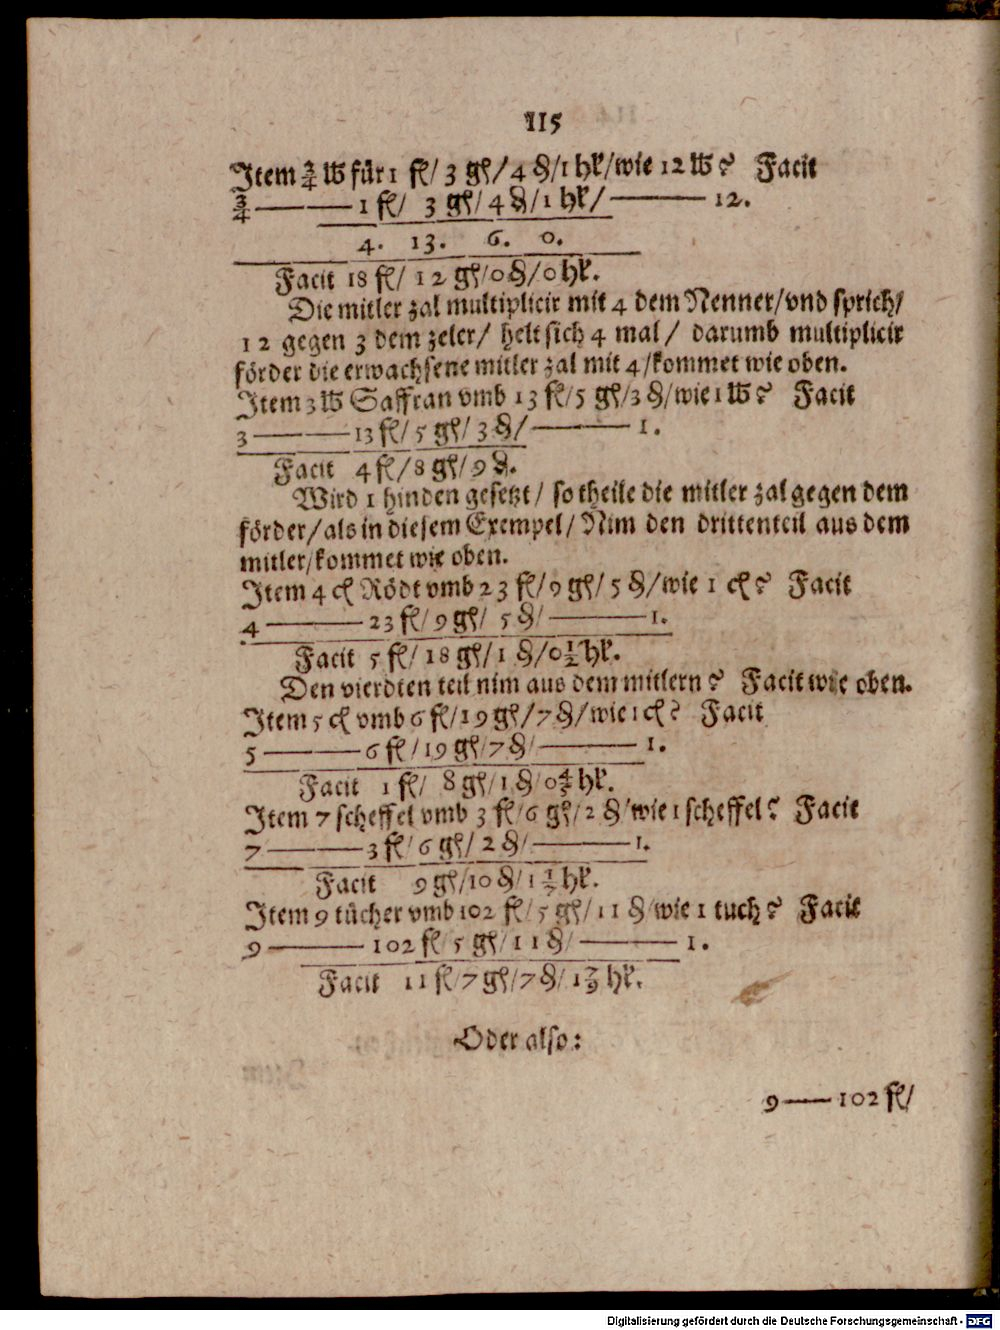 115
Item ¾ ℔ für 1 fl/ 3 gſ/ 4 ₰/1 hlr/wie 12 ℔? Facit
¾ ——— 1 fl/ 3 gſ/ 4 ₰/1 hlr/ ——— 12.
4. 13. 6. 0.
Facit 18 fl/ 12 gſ/0 ₰/0 hlr.
Die mitler zal multiplicir mit 4 dem Nenner/vnd sprich/
12 gegen 3 dem zeler/ helt sich 4 mal/ darumb multiplicir
förder die erwachsene mitler zal mit 4/kommet wie oben.
Item 3 ℔ Saffran vmb 13 fl/5 gſ/3 ₰/wie 1 ℔? Facit
3 ——— 13 fl/ 5 gſ/ 3 ₰/ ——— 1.
Facit 4 fl/8 gſ/9 ₰.
Wird 1 hinden gesetzt/ so theile die mitler zal gegen dem
förder/als in diesem Exempel/ Nim den drittenteil aus dem
mitler/kommet wie oben.
Item 4 cſ Rödt vmb 23 fl/9 gſ/ 5 ₰/wie 1 cſ? Facit
4 ——— 23 fl/ 9 gſ/ 5 ₰/ ——— 1.
Facit 5 fl/ 18 gſ/1 ₰/0½ hlr.
Den vierdten teil nim aus dem mitlern? Facit wie oben.
Item 5 cſ vmb 6 fl/19 gſ/7 ₰/wie 1 cſ? Facit
5 ——— 6 fl/19 gſ/7 ₰/ ——— 1.
Facit 1 fl/ 8 gſ/1 ₰/0⅘ hlr.
Item 7 scheffel vmb 3 fl/6 gſ/2 ₰/wie 1 scheffel? Facit
7 ——— 3 fl/ 6 gſ/ 2 ₰/ ——— 1.
Facit 9 gſ/10 ₰/1 1/7 hlr.
Item 9 tücher vmb 102 fl/5 gſ/11 ₰/wie 1 tuch? Facit
9 ——— 102 fl/ 5 gſ/11 ₰/ ——— 1.
Facit 11 fl/7 gſ/7 ₰/1 7/9 hlr.
Oder also:
9 — 102 fl/
Digitalisierung gefördert durch die Deutsche Forschungsgemeinschaft - DFG